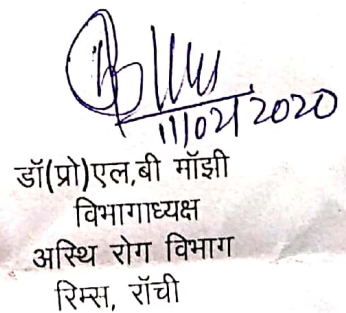 11/02/2020
डॉ(प्रो)एल,बी मॉझी
विभागाध्यक्ष
अस्थि रोग विभाग
रिम्स, रॉची